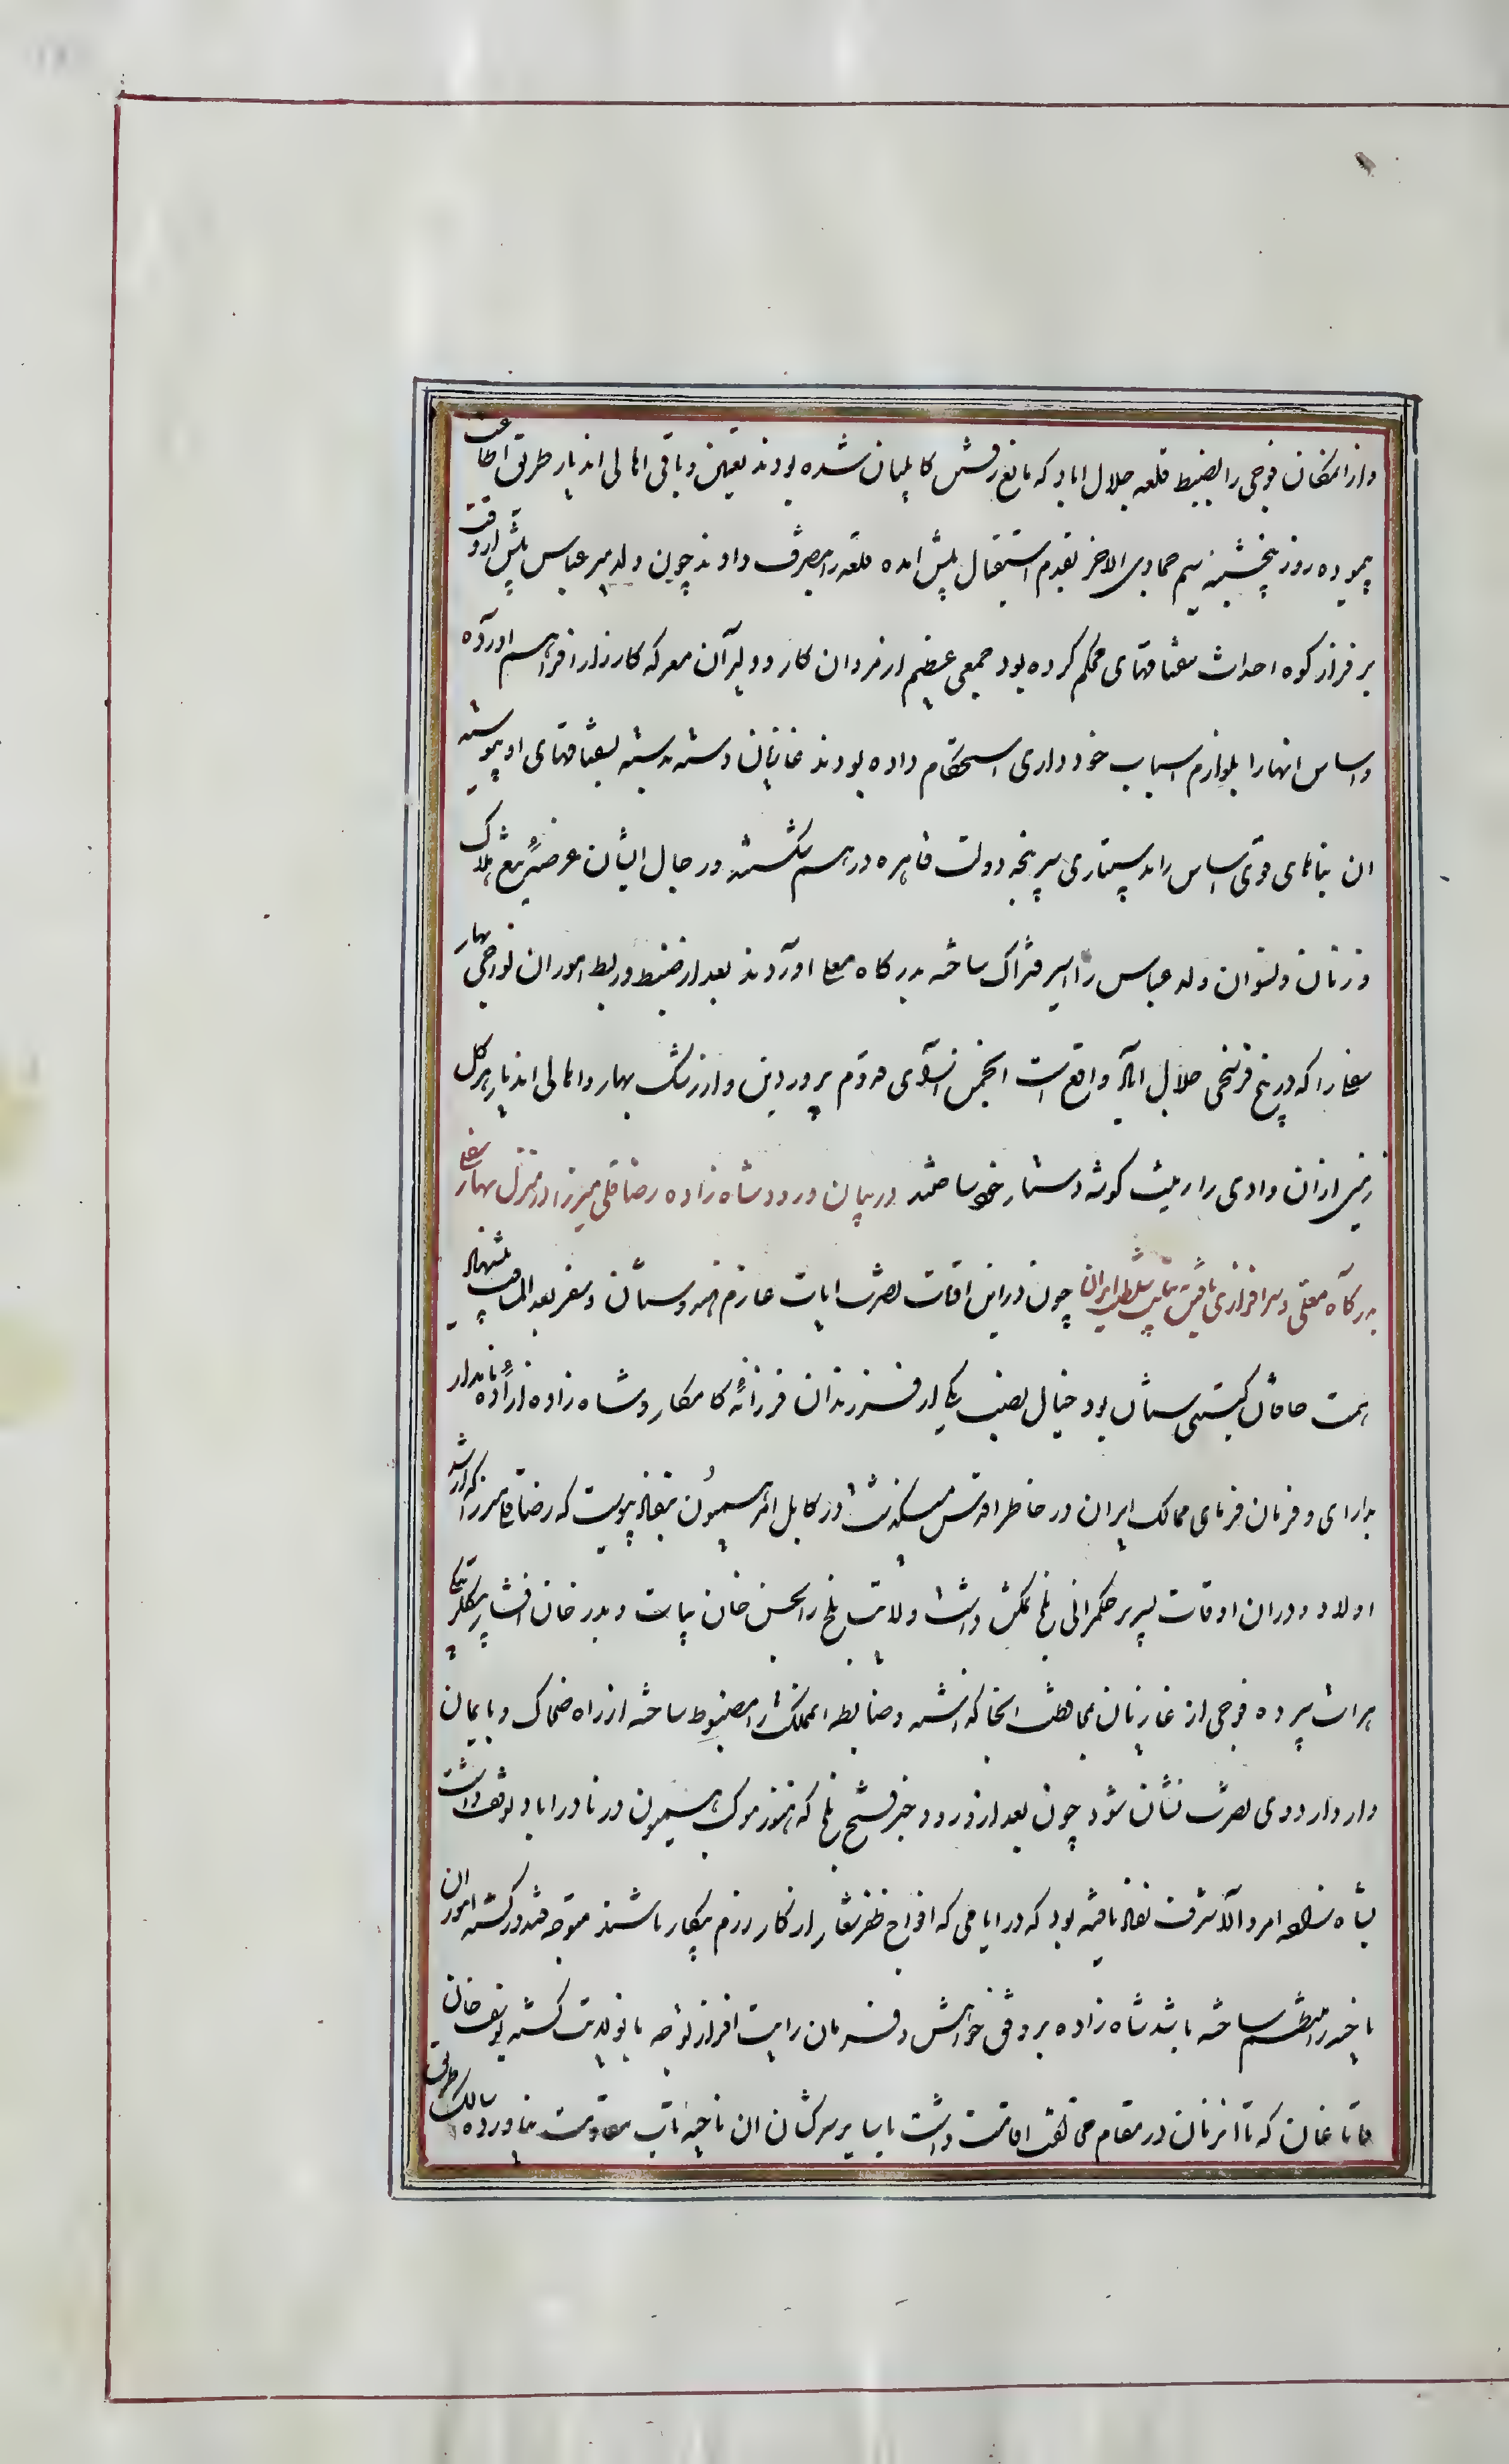 و از انمکان فوجی را بضبط قلعه جلال اباد که مانع رفتن کابلیان شده بودند تعیین و باقی اهالی اندیار طریق اطاعت
پیموده روز پنجشنبه سیم جمادی الاخر بقدم استقبال پیش امده قلعه را بتصرف دادند چون ولد میر عباس پیش از وقت
بر فراز کوه احداث سقناقهای محکم کرده بود جمعی عظیم از مردان کار و دلیران معرکه کارزار فراهم اورده
و اساس انها را بلوازم اسباب خود داری استحکام داده بودند غازیان دسته دسته بسقناقهای او پیوسته
ان بناهای قوی اساس را بدستیاری سرپنجه دولت قاهره درهم شکستند و رجال ایشان عرضهٔ تیغ هلاک
و زنان و نسوان ولد عباس را اسیر فتراک ساخته بدرگاه معلی اوردند بعد از ضبط و ربط امور ان نواحی بهار
سفلی را که در پنج فرسخی جلال اباد واقع است انجمن ارای قدوم فروردین و ارزشک بهار و اهالی اندیار هر گل
زمینی ازان وادی را زینت گوشه دستار خود ساختند در بیان ورود شاه زاده رضا قلی میرزا در منزل بهار سفلی
بدرگاه معلی و سرافرازی یافتن بنیابت سلطنت ایران چون دراین اوقات نصرت ایات عازم هندوستان و سفر بعید المسافت پیشنهاد
همت خاقان گیتی ستان بود خیال نصب یکی از فرزندان فرزانهٔ کامکار و شاه زاده ازادهٔ نامدار
بدارای و فرمان فرمای ممالک ایران در خاطر اقدس میگذشت در کابل امر همیون بنفاذ پیوست که رضا قلی میرزا که ارشد
اولاد و دران اوقات بسریر حکمرانی بلخ تمکن داشت ولایت بلخ را بحسن خان بیات و بدر خان افشار بیگلربیگی
هرات سپرده فوجی از غازیان بمحافظت انجا گذاشته و ضابطه انمملکت را مضبوط ساخته از راه ضحاک و بامیان
وارد اردوی نصرت نشان شود چون بعد از ورود خبر فتح بلخ که هنوز موکب همیون در نادراباد توقف داشت
بشاه زاده امر والا شرف نفاذ یافته بود که در ایامی که افواج ظفر شعار از کار رزم بیکار باشند متوجه قندوز گشته امور ان
ناحیه را منتظم ساخته باشد شاه زاده بر وفق خواهش و فرمان رایت افراز توجه بانولایت گشته یوسف خان
قاتاغان که تا انزمان در مقام مخالفت اقامت داشت با سایر سرکشان ان ناحیه تاب مقاومت نیاورده سالک طریق